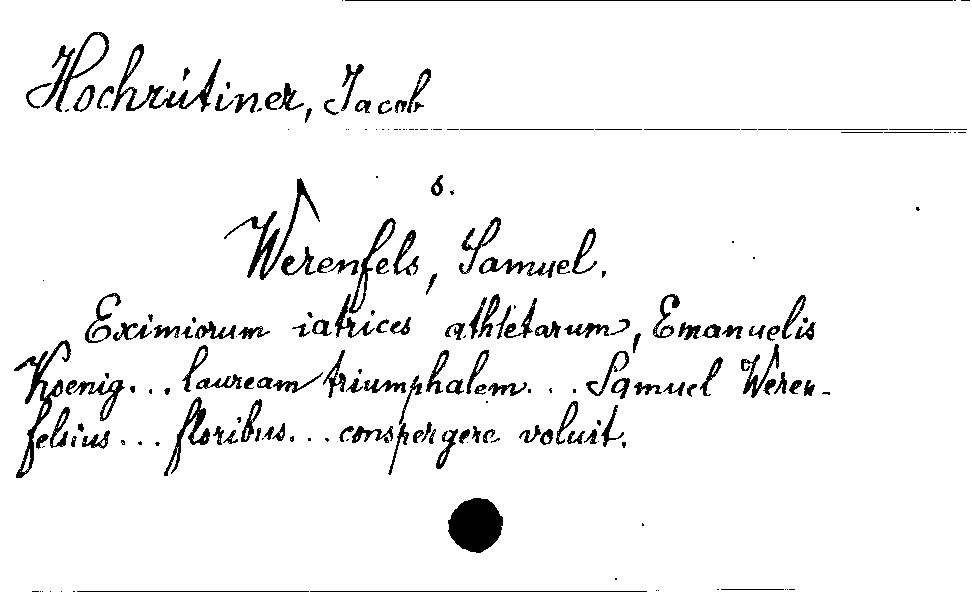 Hochrütiner, Jacob
s.
Werenfels, Samuel.
Eximiorum iatrices athletarum, Emanuelis
Koenig... lauream triumphalem... Samuel Weren-
felsius... floribus... conspergere voluit.